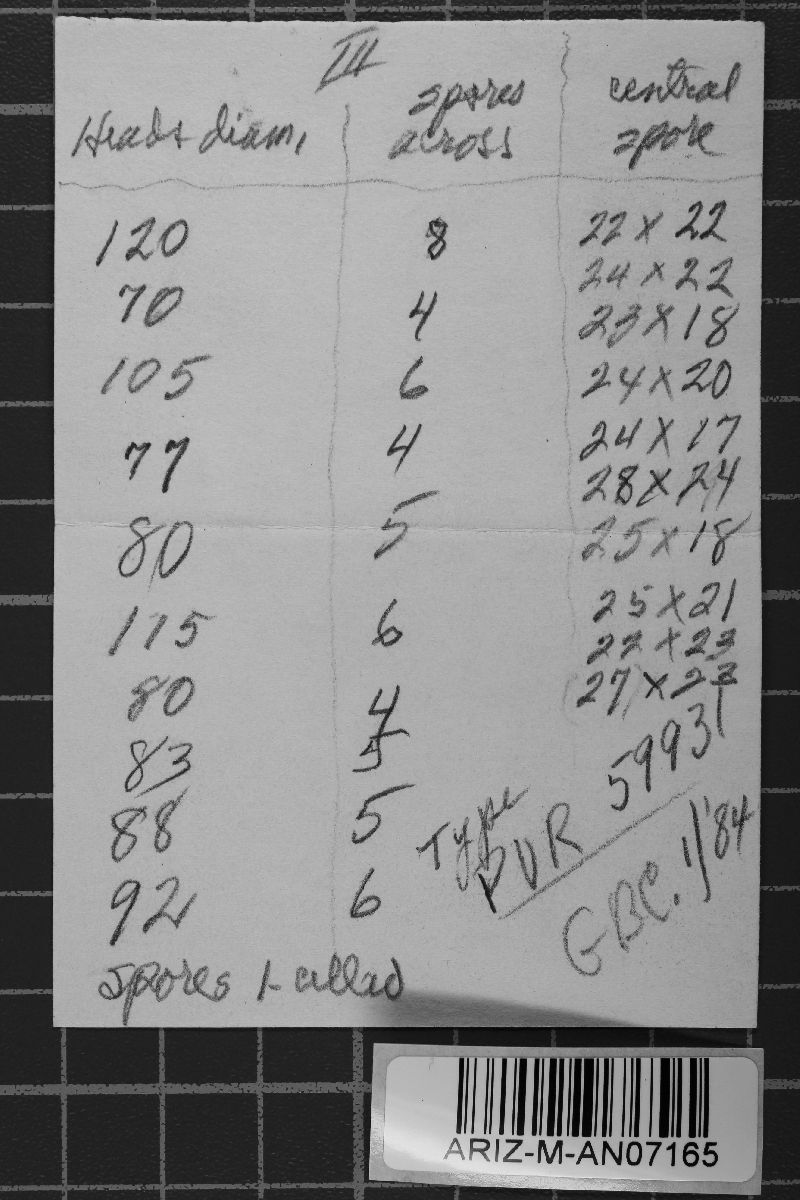 III
Heads diam, spores across central spore
120 8 22 x 22
24 x 22
70 4 23 x 18
105 6 24 x 20
77 4 24 x 17
28 x 24
80 5 25 x 18
115 6 25 x 21
22 x 23
80 4 27 x 23
83 5
88 5
92 6
Type
PUR 59931
GBC. 1/'84
Spores 1-celled
ARIZ-M-AN07165